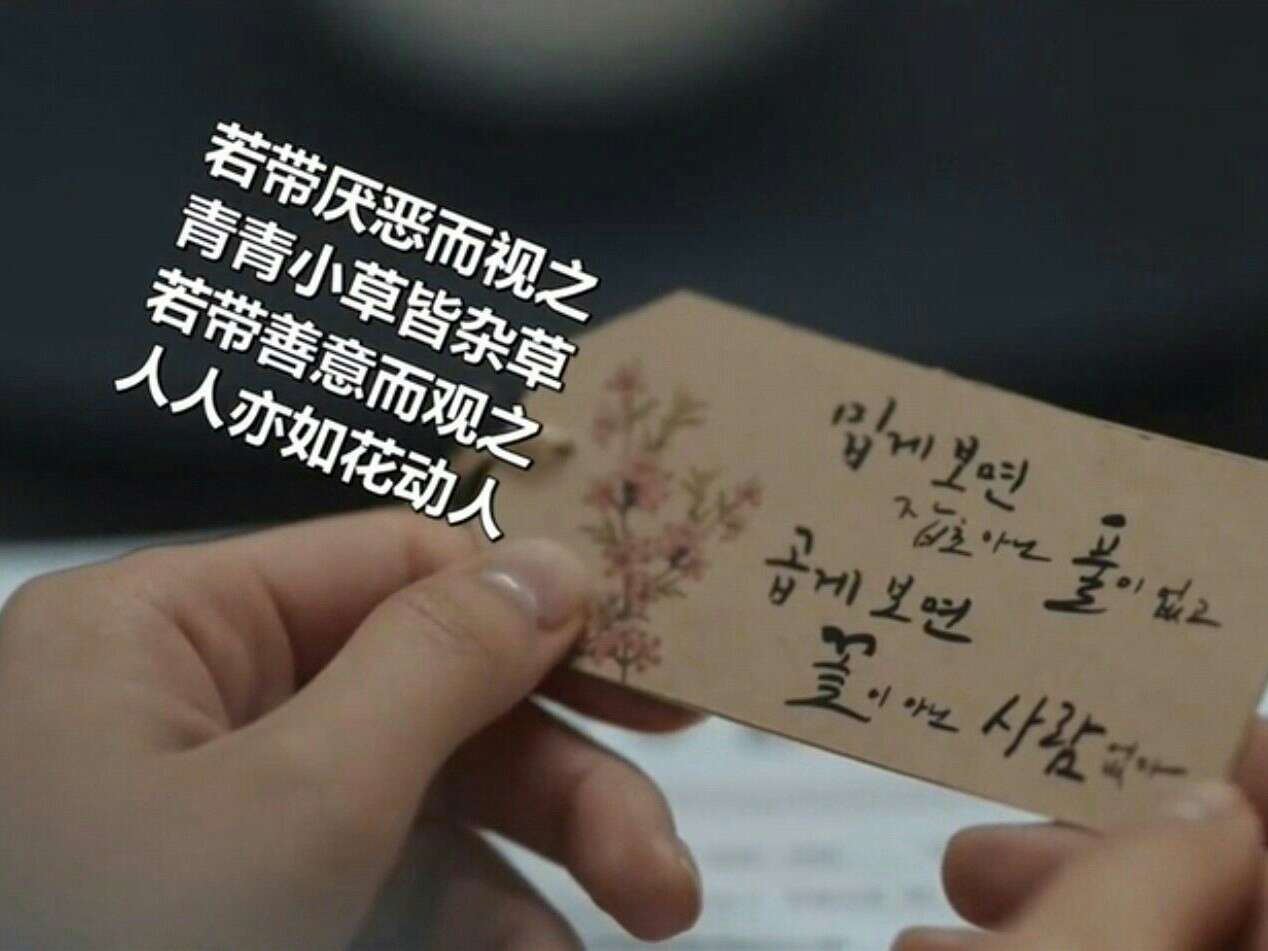 若带厌恶而视之
青青小草皆杂草
若带善意而观之
人人亦如花动人
밉게 보면
잡초 아닌 풀이 없고
곱게 보면
꽃이 아닌 사람 없다